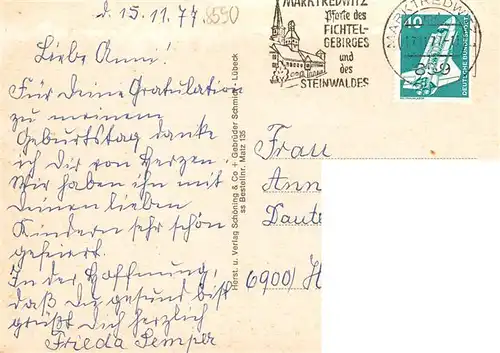 d. 15.11.77 8590
Liebe Anni!
Für Deine Gratulation
zu meinem
Geburtstag danke
ich Dir von Herzen.
Wir haben ihn mit
Deinen lieben
Kindern sehr schön
gefeiert.
In der Hoffnung,
daß Du gesund bist
grüßt Dich herzlich
Frieda Semper
Herst. u. Verlag Schöning & Co + Gebrüder Schmidt, Lübeck
ss Bestellnr. Matz 135
MARKTREDWITZ
Pforte des
FICHTEL-
GEBIRGES
und
des
STEINWALDES
MARKTREDWITZ
859
40
DEUTSCHE BUNDESPOST
Frau
Ann
Daute
6900/ H